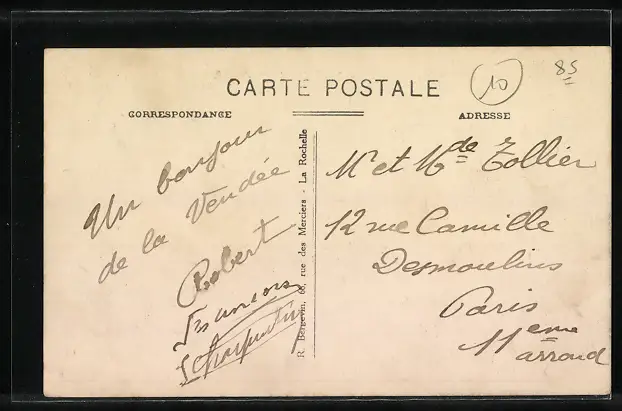 CARTE POSTALE
10
85
CORRESPONDANCE
ADRESSE
Un bonjour
de la Vendée
Robert
R. Bergevin, 66, rue des Merciers - La Rochelle
Mr et Mde Tollier
12 rue Camille
Desmoulins
Paris
11eme
arrond